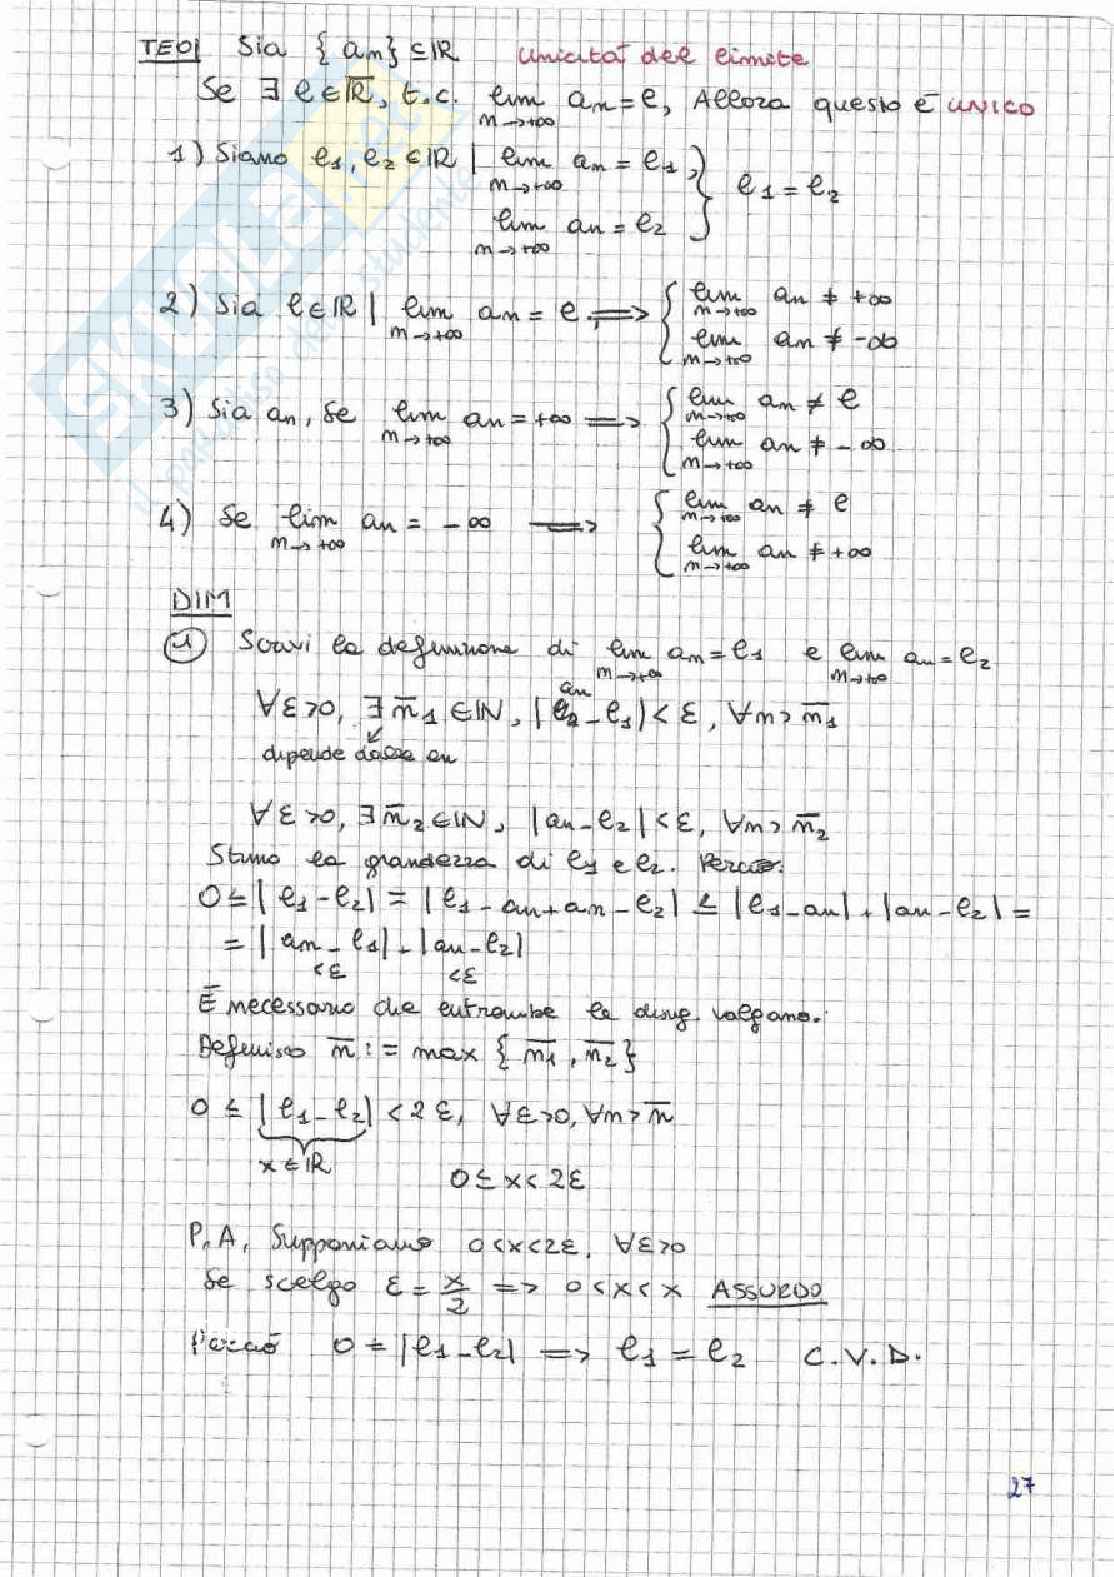 TEO| Sia {an} ⊆ ℝ   Unicità del limite
Se ∃ l ∈ ℝ̅, t.c. lim an = l, Allora questo è UNICO
n→+∞
1) Siano l₁, l₂ ∈ ℝ | lim an = l₁, } l₁ = l₂
n→+∞
lim an = l₂
n→+∞
2) Sia l ∈ ℝ | lim an = l. ⟹ { lim an ≠ +∞
n→+∞ n→+∞
lim an ≠ -∞
n→+∞
3) Sia an, Se lim an = +∞ ⟹ { lim an ≠ l
n→+∞ n→+∞
lim an ≠ -∞
n→+∞
4) Se lim an = -∞ ⟹ { lim an ≠ l
n→+∞ n→+∞
lim an ≠ +∞
n→+∞
DIM
① Scrivi la definizione di lim an = l₁ e lim an = l₂
n→+∞ n→+∞
an
∀ε>0, ∃ n̅₁ ∈ ℕ, | -l₁| < ε, ∀n > n̅₁
dipende dalla an
∀ε>0, ∃ n̅₂ ∈ ℕ, |an - l₂| < ε, ∀n > n̅₂
Stimo la grandezza di l₁ e l₂.
0 ≤ |l₁ - l₂| = |l₁ - an + an - l₂| ≤ |l₁ - an| + |an - l₂| =
= |an - l₁| + |an - l₂|
<ε <ε
È necessario che entrambe le diseg. valgano.
Definisco n̅ := max {n̅₁, n̅₂}
0 ≤ |l₁ - l₂| < 2ε, ∀ε>0, ∀n > n̅
x ∈ ℝ
0 ≤ x < 2ε
P.A. Supponiamo 0<x<2ε, ∀ε>0
Se scelgo ε = x/2 => 0 < x < x ASSURDO
Perciò 0 = |l₁ - l₂| => l₁ = l₂ C.V.D.
27